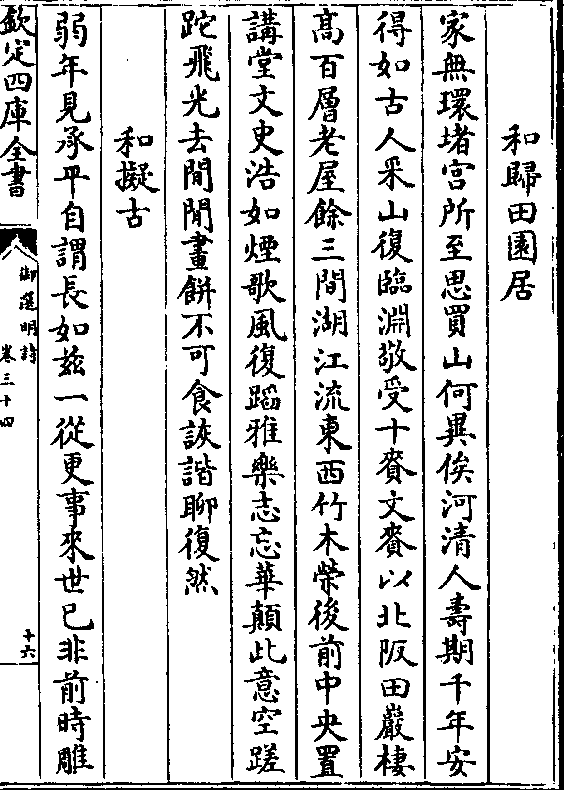 和歸田園居
家無環堵宮所至思買山何異俟河清人壽期千年安
得如古人釆山復臨淵敬受十賚文賚以北阪田巖棲
高百層老屋餘三間湖江流東西竹木榮後前中央置
講堂文史浩如煙歌風復蹈雅樂志忘華顛此意空蹉
跎飛光去閒閒畫餅不可食詼諧聊復然
和擬古
弱年見承平自謂長如茲一從更事來世已非前時雕
欽定四庫全書
御選明詩
卷三十四
十六